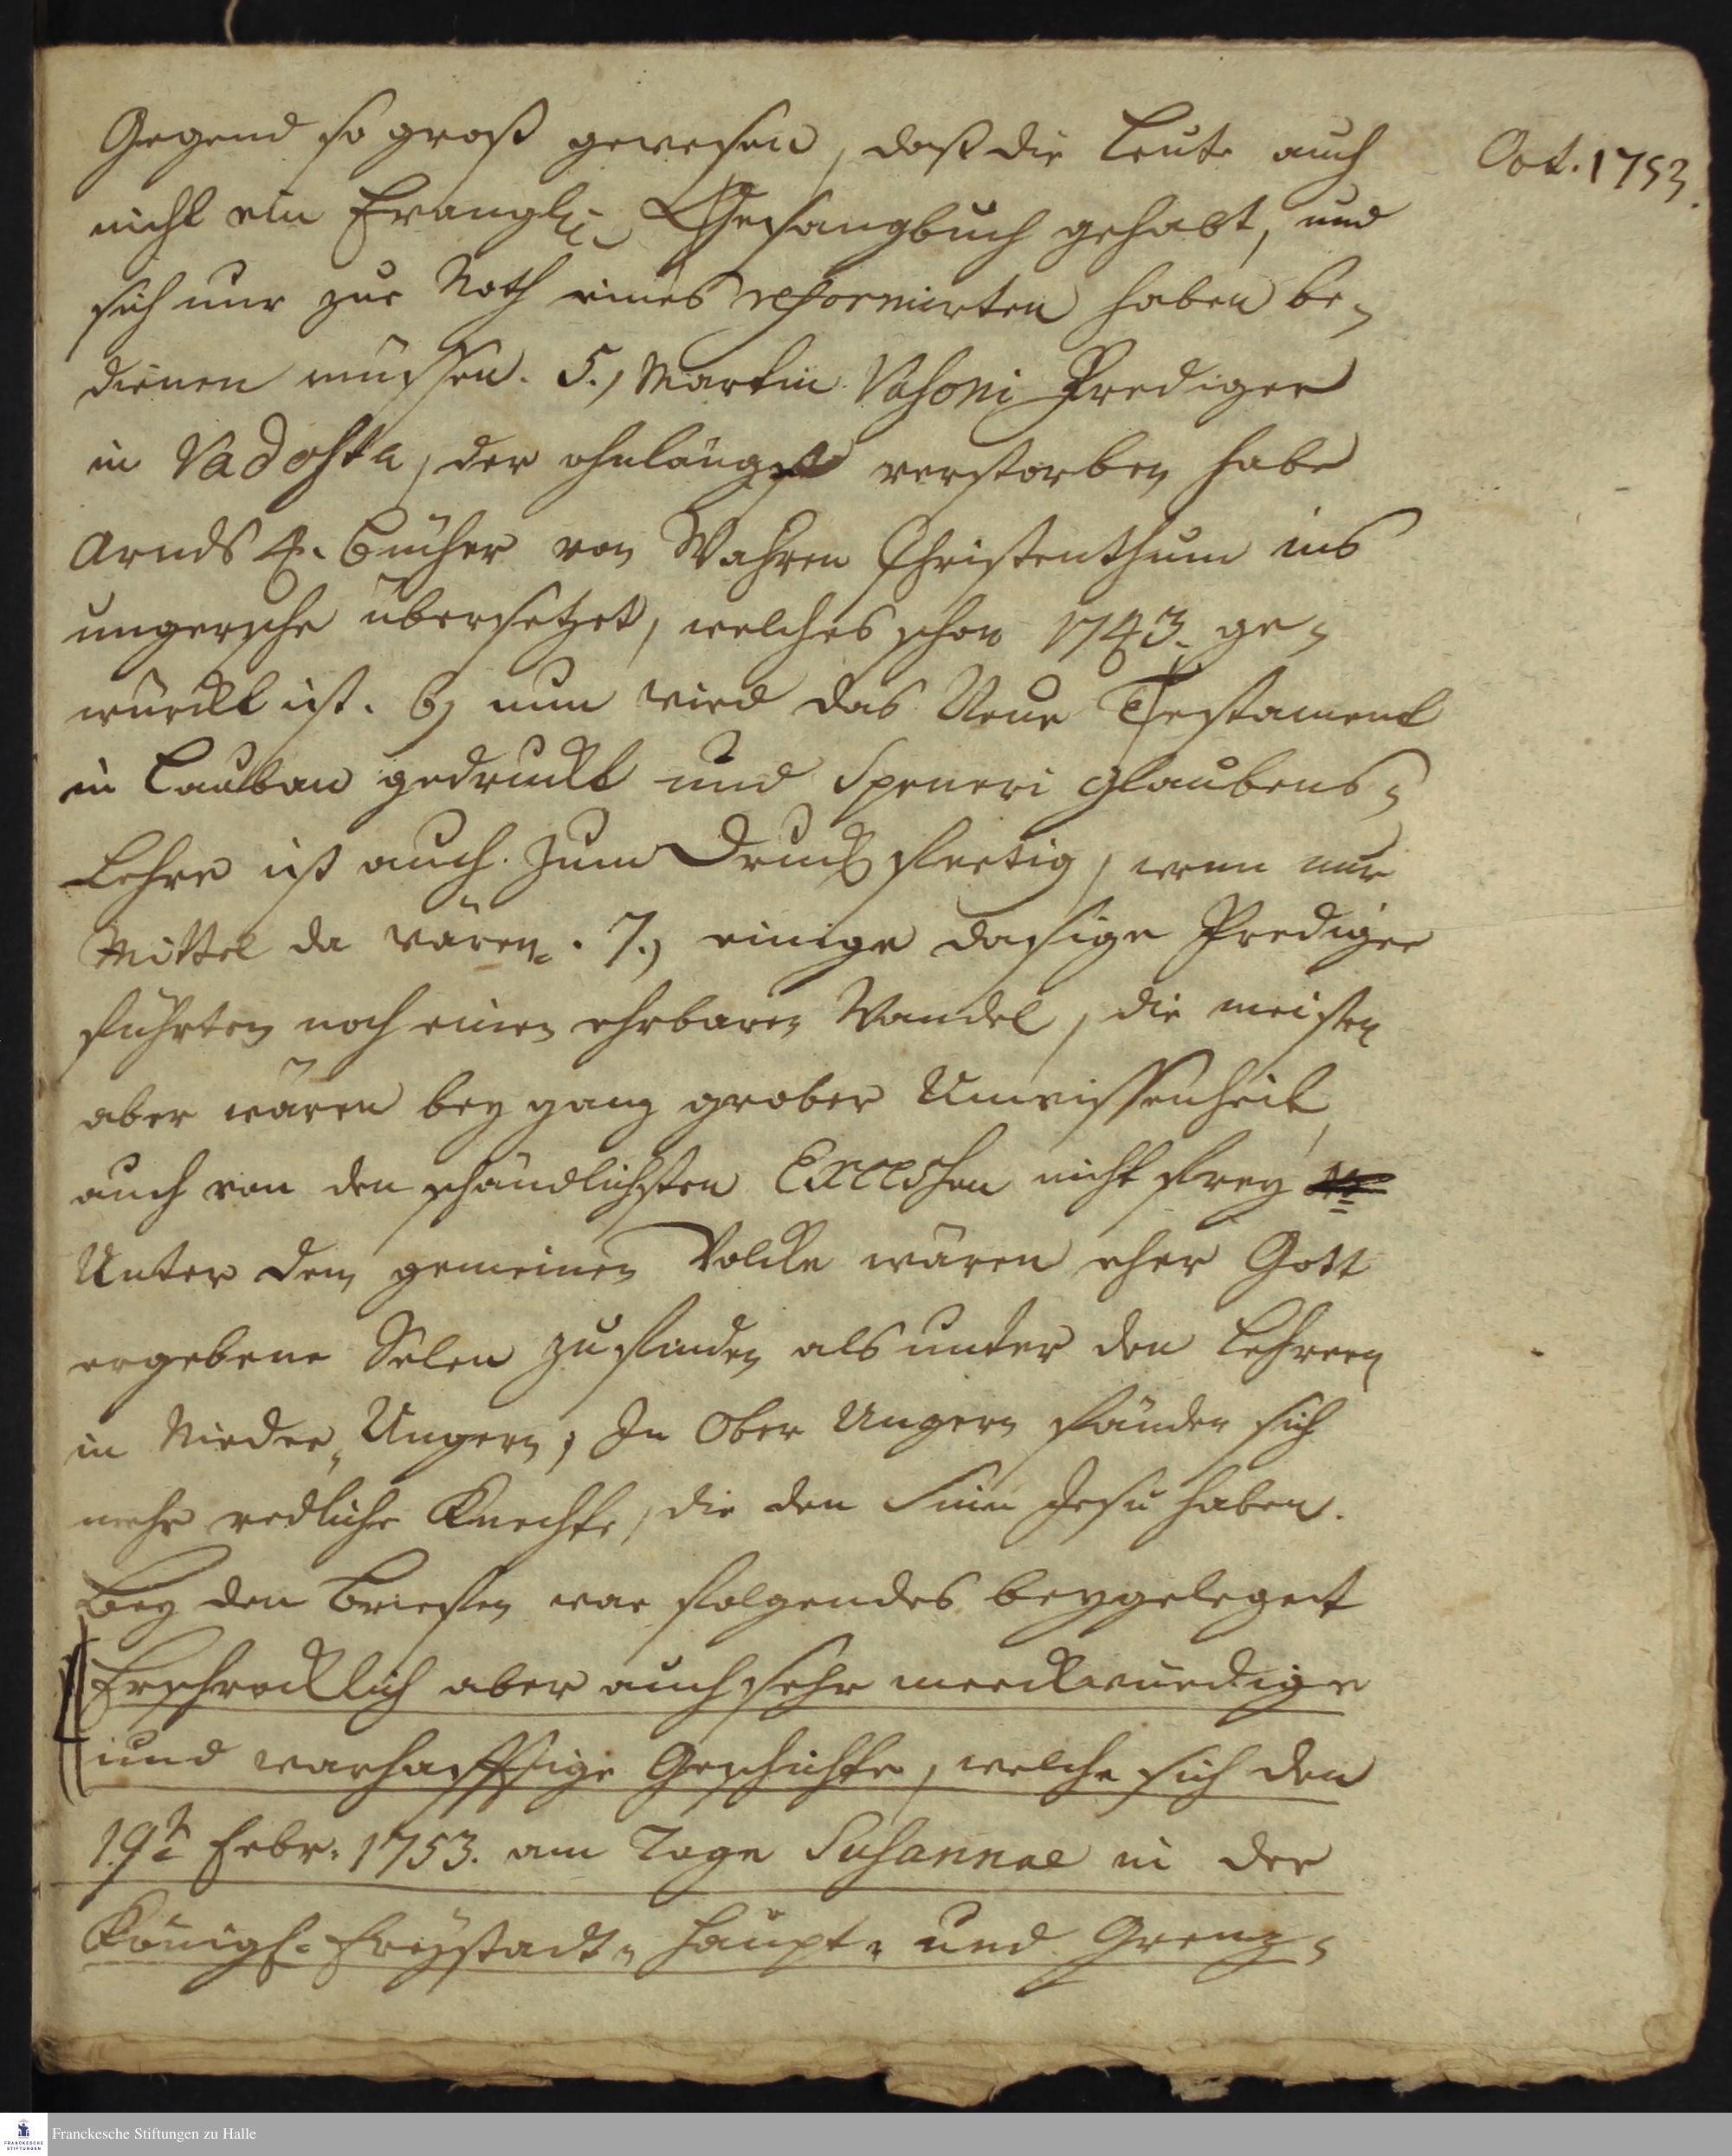 Gegend so groß gewesen, daß die Leute auch
Oct. 1753.
nicht ein Evangl. Gesangbuch gehabt, und
sich nur zur Noth eines reformirten haben be-
dienen müssen. 5., Martin Vasoni Prediger
in Vadosfa, der ohnlängst verstorben habe
Arnds 4. Bücher von Wahren Christenthum ins
ungersche übersetzet, welches schon 1743. ge-
würckt ist. 6, nun wird das Neue Testament
in Lauban gedruckt und Speneri Glaubens-
Lehre ist auch zum Druck fertig, wenn nur
Mittel da wären. 7., einige dasige Prediger
führten noch einen ehrbaren Wandel, die meisten
aber wären bey ganz grober Unwissenheit,
auch von den schändlichsten Excessen nicht frey
Unter dem gemeinen Volcke wären eher Gott
ergebene Selen zu finden als unter den Lehrern
in Nieder-Ungern, In Ober Ungern fänden sich
mehr redliche Knechte, die den Sinn Jesu haben.
Bey den Briefen war folgendes beygeleget
Erschrecklich aber auch sehr merckwürdige
und warhafftige Geschichte, welche sich den
19t Febr. 1753. am Tage Susannae in der
Königl. Freystadt- Haupt- und Grenz-
Franckesche Stiftungen zu Halle